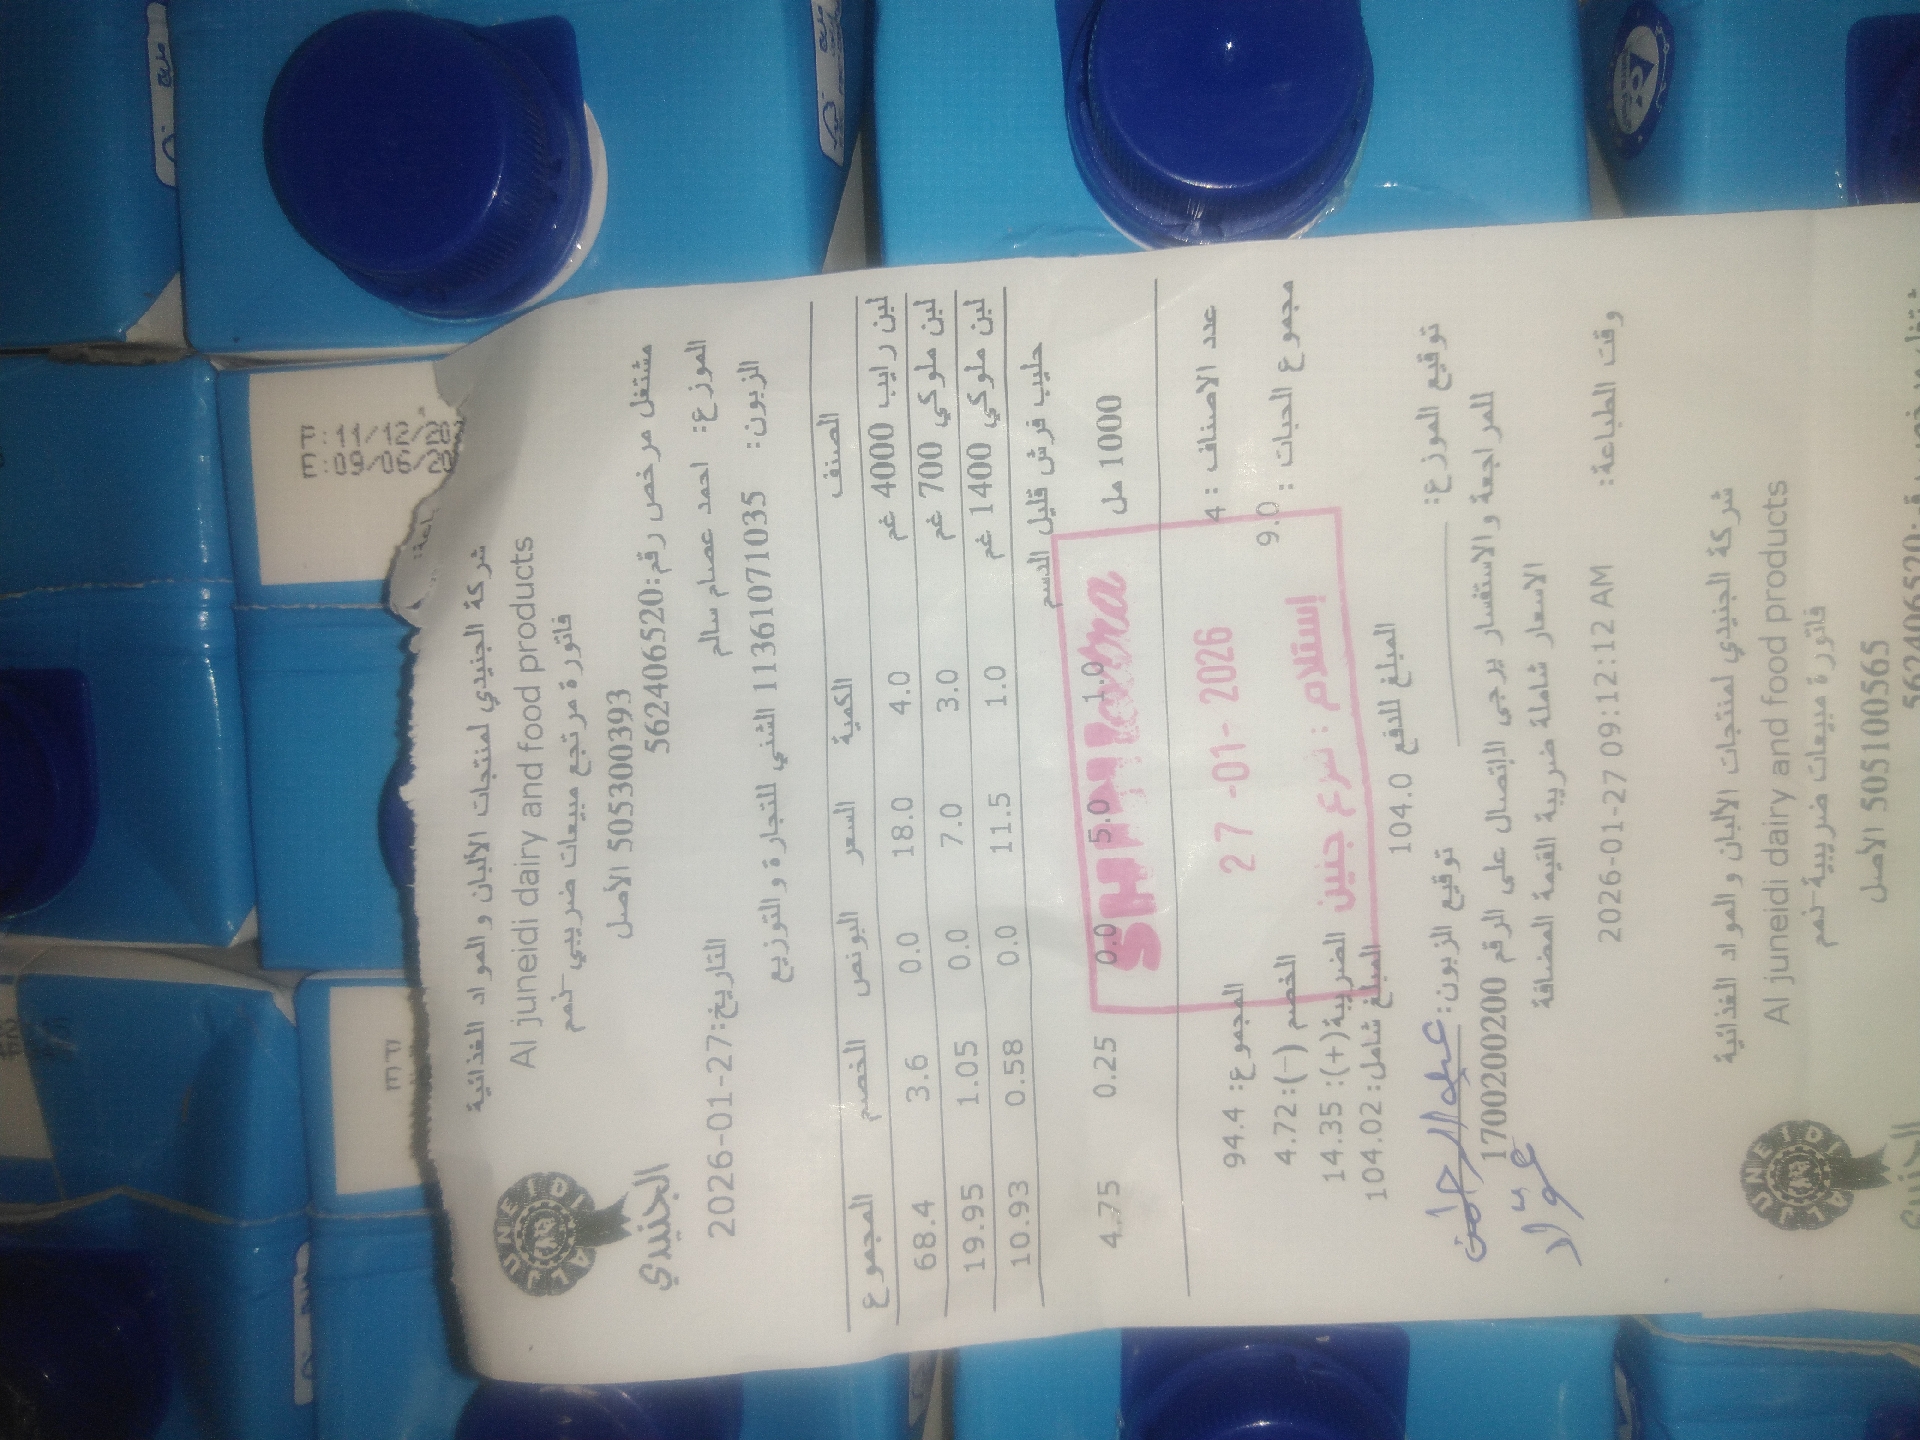 شركة الجنيدي لمنتجات الالبان والمواد الغذائية
Al juneidi dairy and food products
فاتورة مرتجع مبيعات ضريبي-ذمم
505300393 الأصل
AL JUNEIDI
الجنيدي
مشتغل مرخص رقم:562406520
الموزع: احمد عصام سالم
التاريخ:2026-01-27
الزبون: 11361071035 الشني للتجارة والتوزيع
الصنف الكمية السعر البونص الخصم المجموع
لبن رايب 4000 غم 4.0 18.0 0.0 3.6 68.4
لبن ملوكي 700 غم 3.0 7.0 0.0 1.05 19.95
لبن ملوكي 1400 غم 1.0 11.5 0.0 0.58 10.93
حليب فرش قليل الدسم
1000 مل 1.0 5.0 0.0 0.25 4.75
27-01-2026
عدد الاصناف : 4
المجموع: 94.4
مجموع الحبات : 9.0
الخصم (-): 4.72
الضريبة(+): 14.35
المبلغ شامل: 104.02
المبلغ للدفع 104.0
توقيع الموزع:
توقيع الزبون: عبد الرحمن
للمراجعة والاستفسار يرجى الاتصال على الرقم 1700200200
الاسعار شاملة ضريبة القيمة المضافة
وقت الطباعة: 2026-01-27 09:12:12 AM
شركة الجنيدي لمنتجات الالبان والمواد الغذائية
Al juneidi dairy and food products
فاتورة مبيعات ضريبية-ذمم
505100565 الأصل
AL JUNEIDI
562406520
P:11/12/20
E:09/06/20